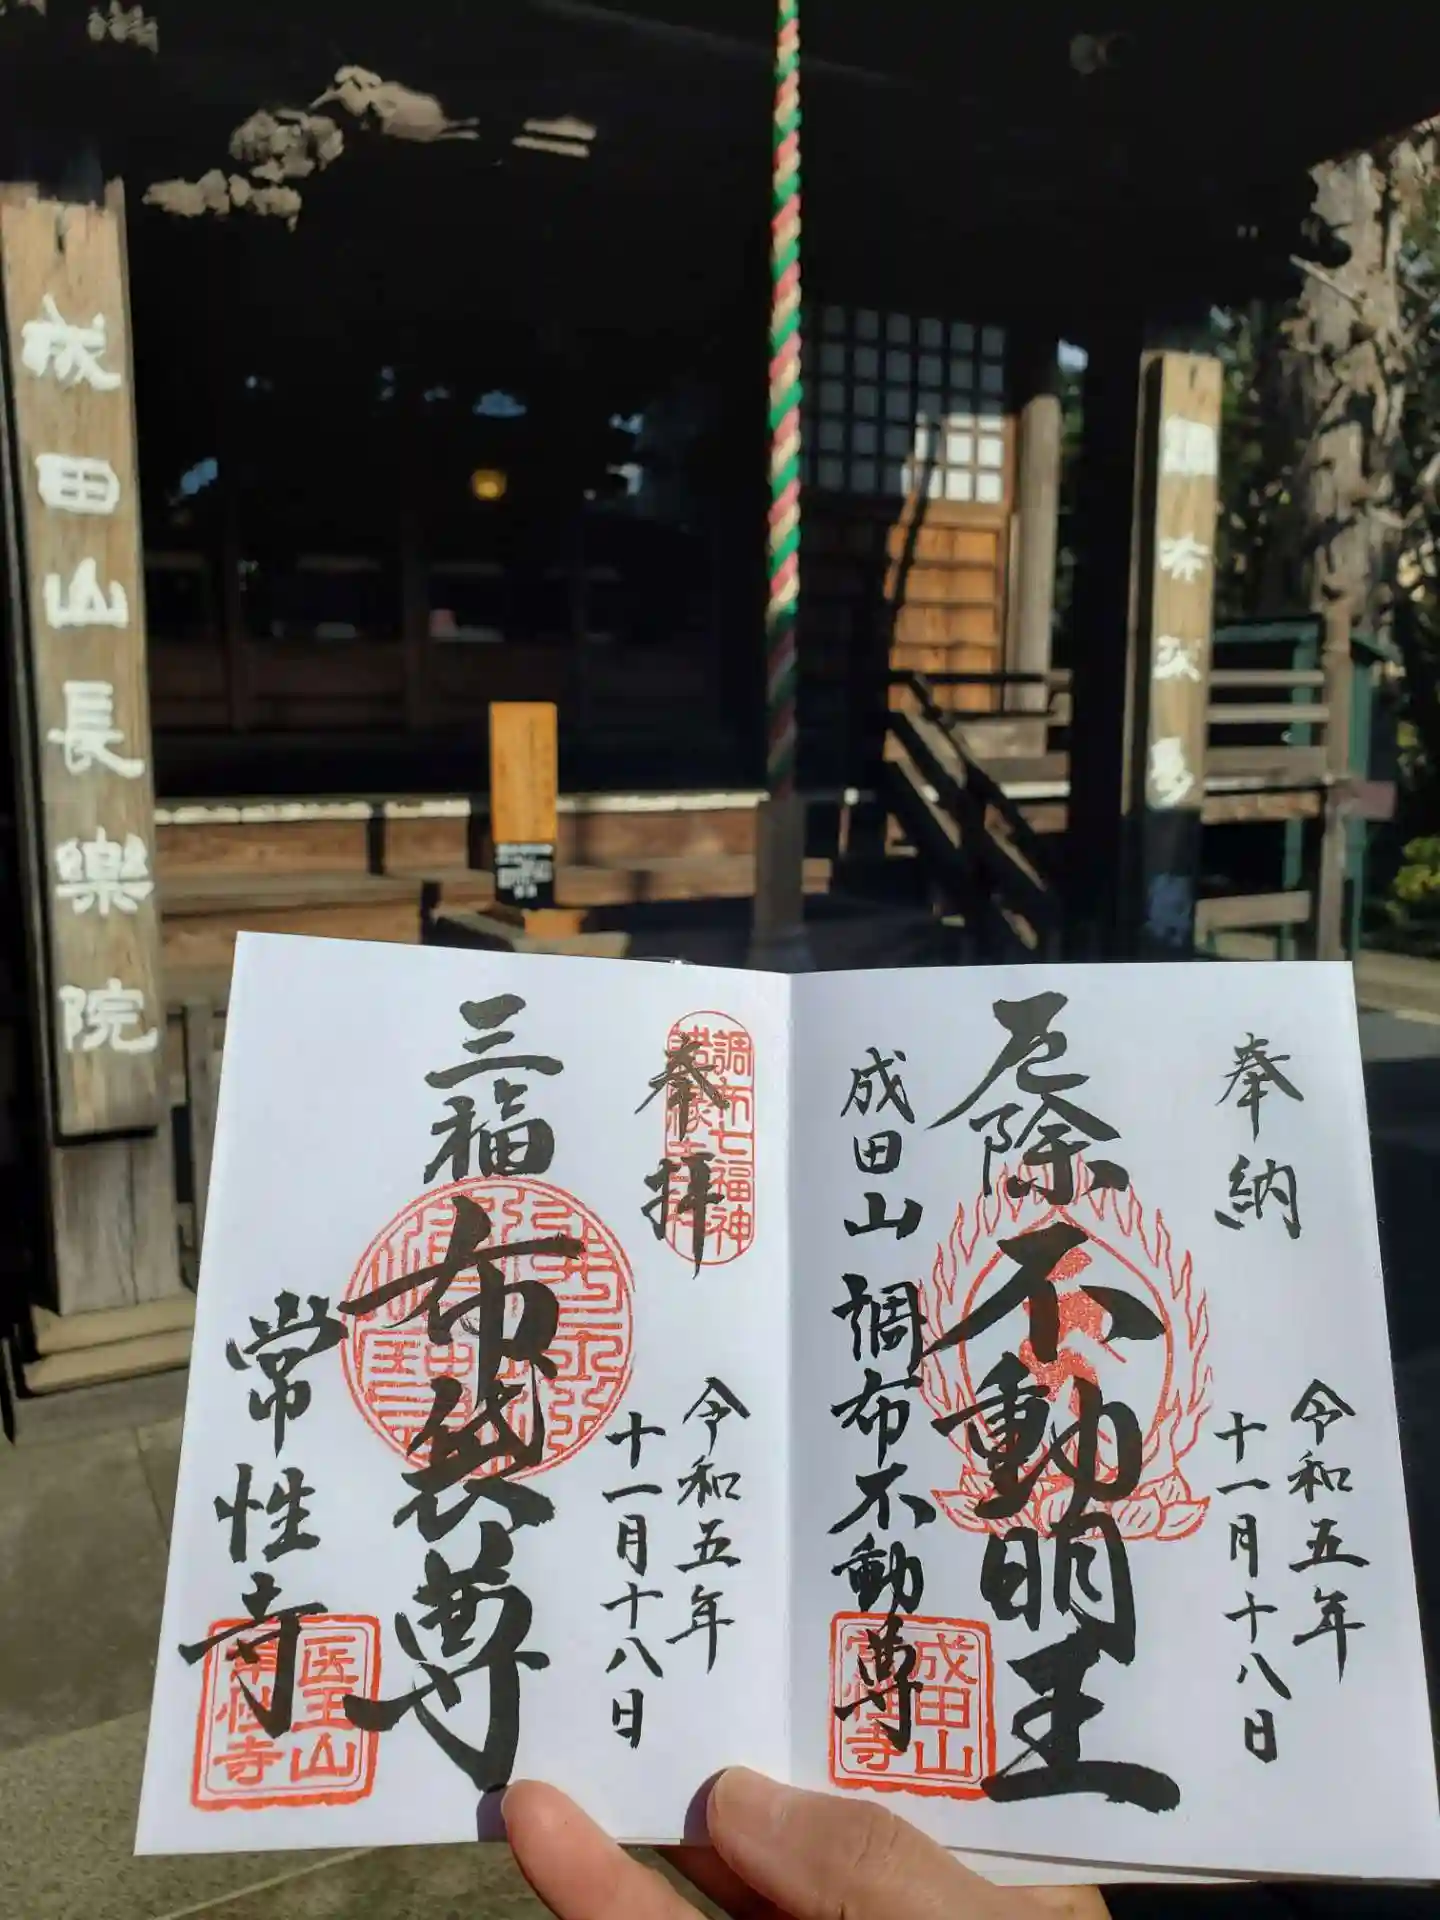 成田山長樂院
調布不動
奉納
令和五年
十一月十八日
厄除不動明王
成田山調布不動尊
成田山
常性寺
奉拝
調布七福神
令和五年
十一月十八日
三福布袋尊
常性寺
医王山
常性寺